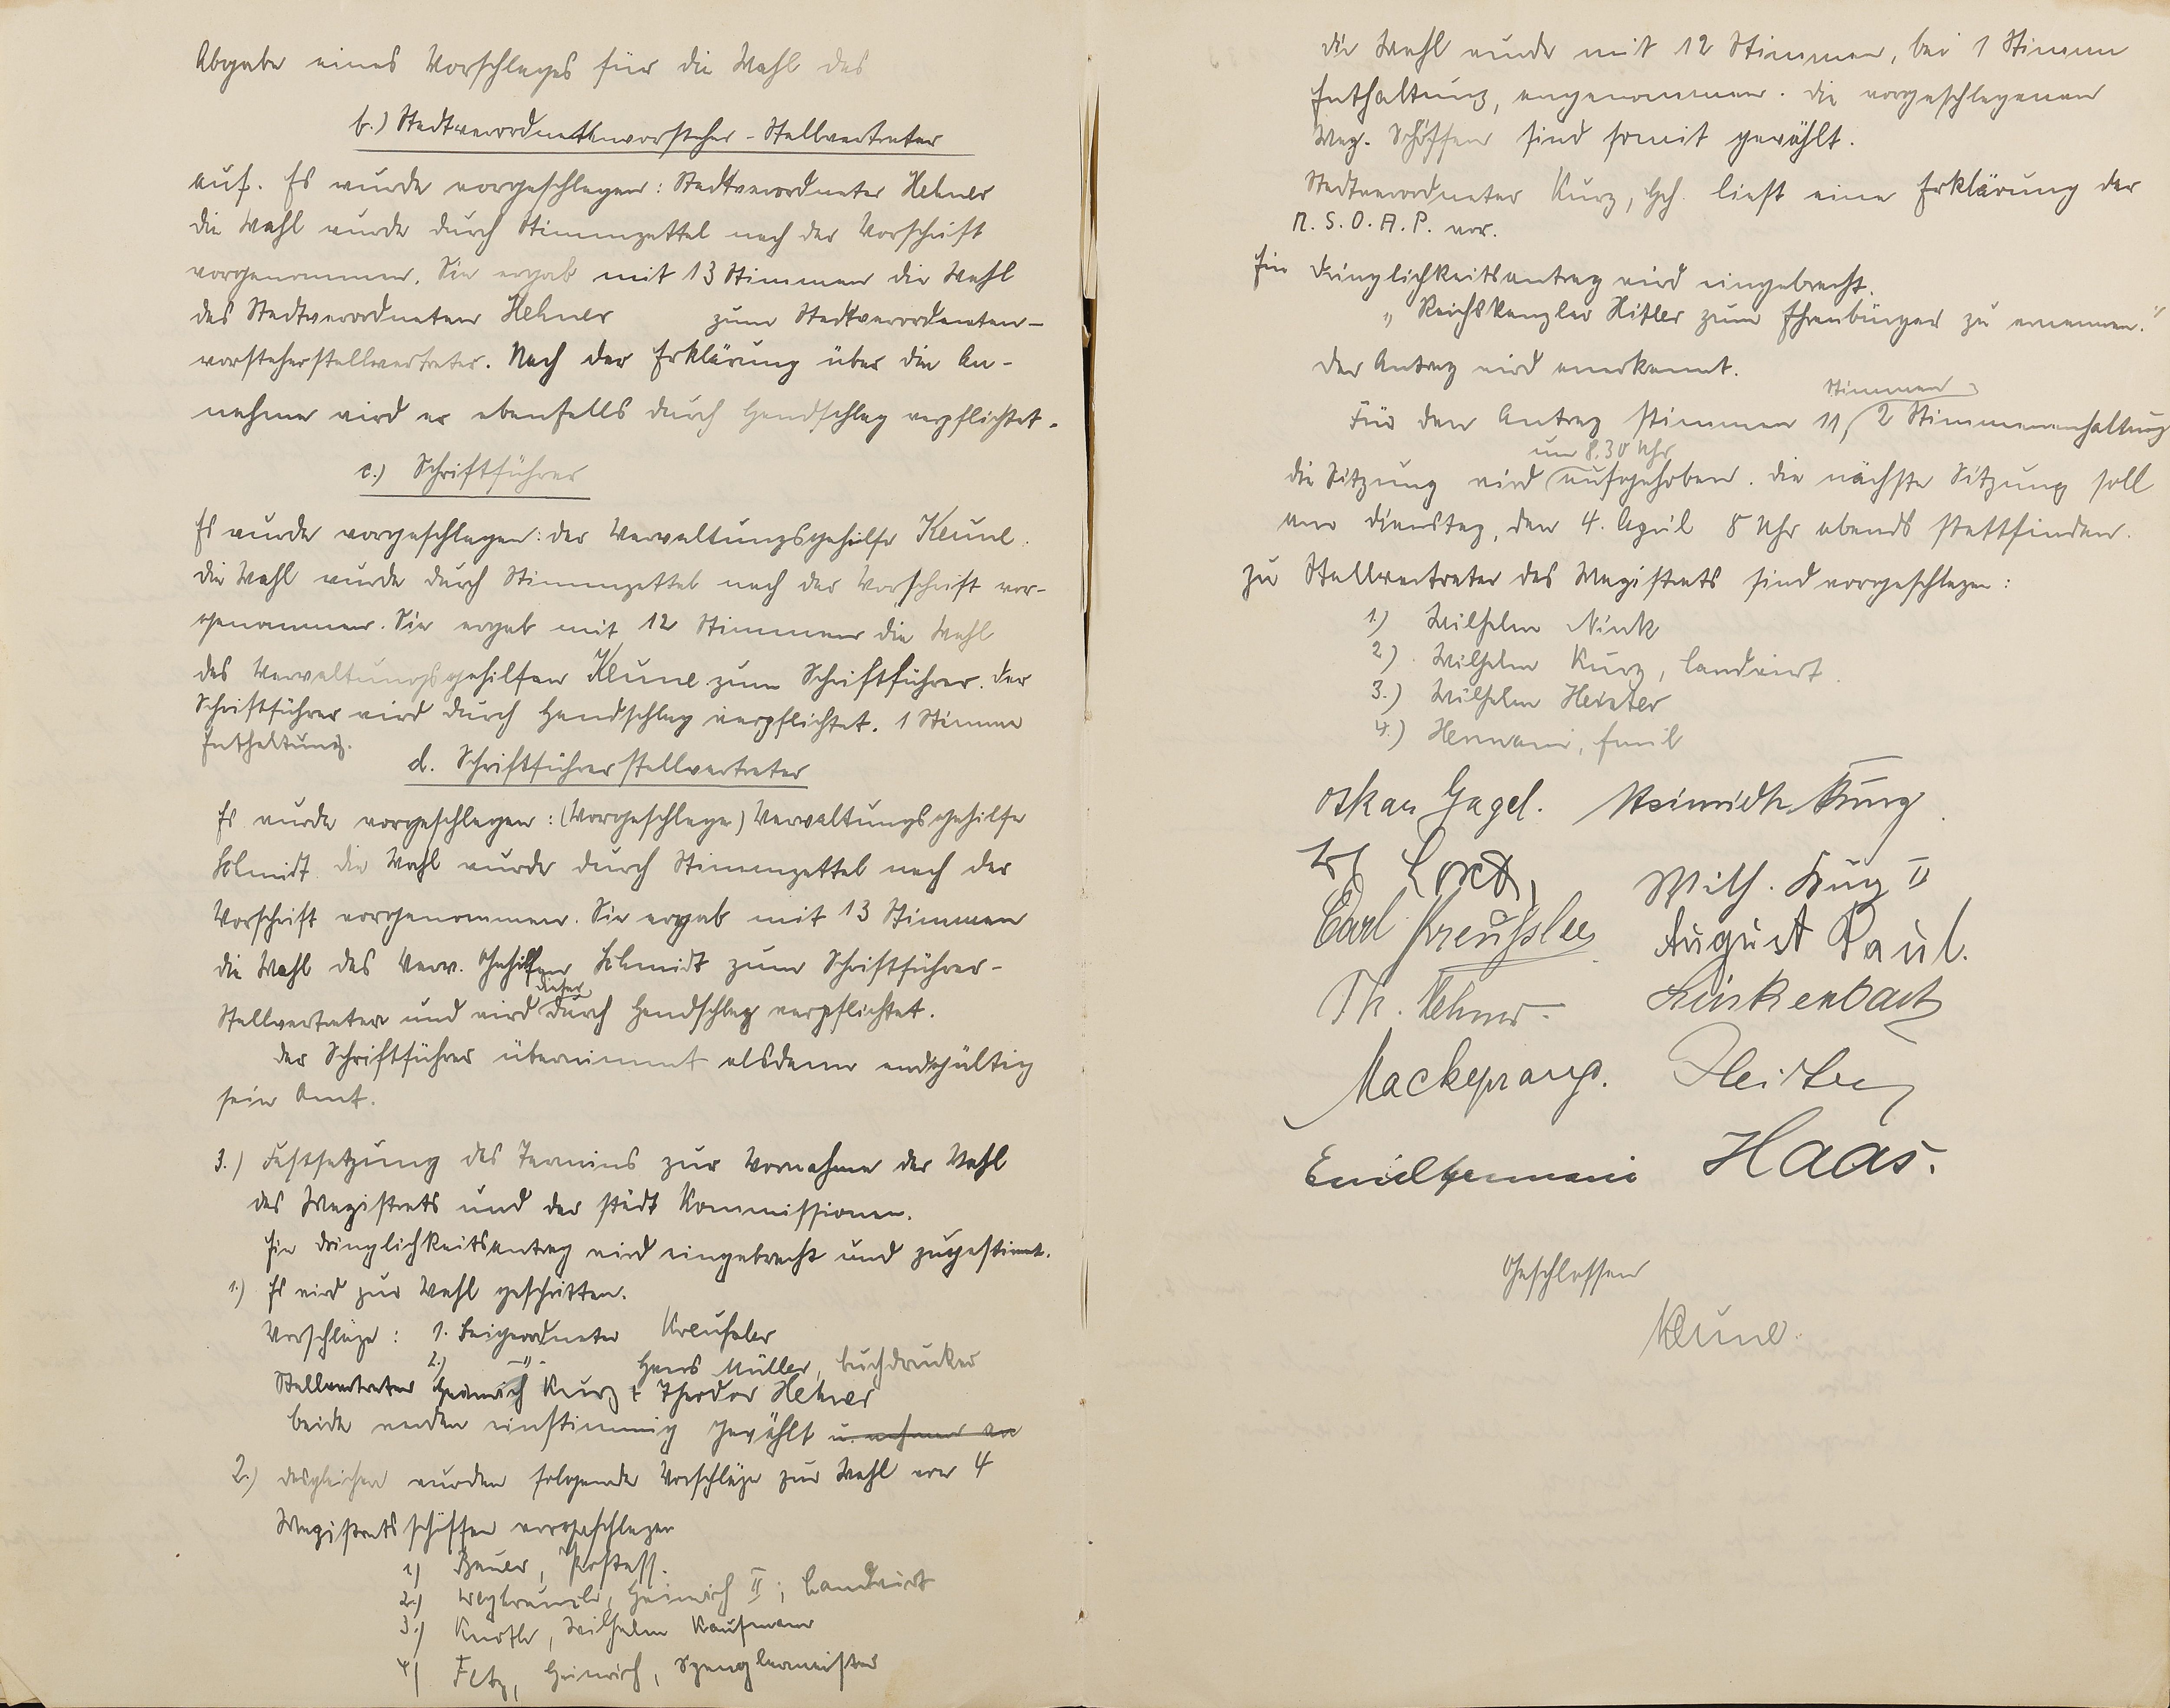 Abgabe eines Vorschlages für die Wahl des
b.) Stadtverordnetenvorsteher-Stellvertreter
auf. Es wurde vorgeschlagen: Stadtverordneter Hehner
die Wahl wurde durch Stimmzettel nach der Vorschrift
vorgenommen. Sie ergab mit 13 Stimmen die Wahl
des Stadtverordneten Hehner zum Stadtverordneten-
vorsteherstellvertreter. Nach der Erklärung über die An-
nahme wird er ebenfalls durch Handschlag verpflichtet.
c.) Schriftführer
Es wurde vorgeschlagen: der Verwaltungsgehilfe Keune.
die Wahl wurde durch Stimmzettel nach der Vorschrift vor-
genommen. Sie ergab mit 12 Stimmen die Wahl
des Verwaltungsgehilfen Keune zum Schriftführer. der
Schriftführer wird durch Handschlag verpflichtet. 1 Stimme
Enthaltung.
d. Schriftführerstellvertreter
Es wurde vorgeschlagen: (Vorgeschlage) Verwaltungsgehilfe
Schmidt die Wahl wurde durch Stimmzettel nach der
Vorschrift vorgenommen. Sie ergab mit 13 Stimmen
die Wahl des Verw. Gehilfen Schmidt zum Schriftführer-
Stellvertreter und wird dieser durch Handschlag verpflichtet.
der Schriftführer übernimmt alsdann endgültig
sein Amt.
3.) Festsetzung des Termins zur Vornahme der Wahl
des Magistrats und der städt Kommissionen.
Ein Dringlichkeitsantrag wird eingebracht und zugestimmt.
1.) Es wird zur Wahl geschritten.
Vorschläge: 1. Beigeordneter Kreußler
2.) -"- Hans Müller, Buchdrucker
Stellvertreter Heinrich Kurz + Theodor Hehner
beide werden einstimmig gewählt u. nehmen an
2.) desgleichen wurden folgende Vorschläge zur Wahl von 4
Magistratsschöffen vorgeschlagen
1) Bauer, Postass.
2.) Heinrich II; Landwirt
3.) Wilhelm Kaufmann
4) Fetz, Heinrich, Spenglermeister
die Wahl wurde mit 12 Stimmen, bei 1 Stimme
Enthaltung, angenommen. die vorgeschlagenen
Mag. Schöffen sind somit gewählt.
Stadtverordneter Kurz, Hch. liest eine Erklärung der
N.S.D.A.P. vor.
Ein Dringlichkeitsantrag wird eingebracht.
„Reichskanzler Hitler zum Ehrenbürger zu ernennen."
der Antrag wird anerkannt.
Für den Antrag stimmen 11 Stimmen, 2 Stimmenenhaltung
die Sitzung wird um 8.30 Uhr aufgehoben. die nächste Sitzung soll
am Dienstag, den 4. April 8 Uhr abends stattfinden.
zu Stellvertreter des Magistrats sind vorgeschlagen:
1.) Wilhelm Nink
2.) Wilhelm Kurz, Landwirt.
3.) Wilhelm Heister
4.) Hermani, Emil
Oskar Gagel. Heinrich Kurz
Carl Kreußler
Wilh. Kurz II
August Paul.
Th. Hehner.
Linkenbach
Mackeprang. Pleister
Emil Hermani Haas.
Geschlossen
Keune.